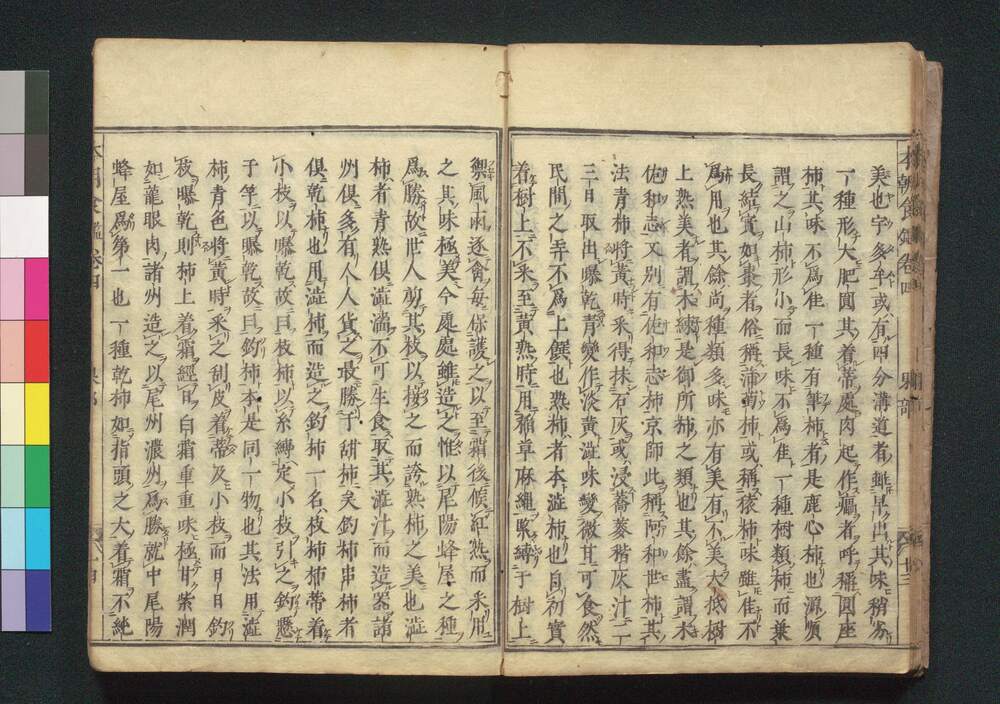 美也宇多牟或有四分溝道者雖早出其味稍劣
一種形大肥圓其着蒂處肉起作臍者呼稱圓座
柿其味不爲佳一種有筆柿者是鹿心柿也源順
謂之山柿形小而長味不爲佳一種樹類柿而葉
長結實如棗者俗稱蒲萄柿或稱猿柿味雖佳不
爲用也其餘尚種類多味亦有美有不美大抵樹
上熟美者謂木練是御所柿之類也其餘盡謂木
佐和志又別有佐和志柿京師此稱阿和世柿其
法青柿將黃時采得抹石灰或浸蕎麥稭灰汁一
二日取出曝乾青變作淡黃澁味變微甘可食然
民間之弄不爲上饌也熟柿者本澁柿也自初實
着樹上不采至黃熟時用稻草麻繩緊縛于樹上
禦風雨逐禽毎保護之以至霜後候紅熟而采用
之其味極美今處處雖造之惟以尾陽蜂屋之種
爲勝故世人剪其枝以接之而誇熟柿之美也澁
柿者青熟俱澁濇不可生食取其澁汁而造器諸
州俱多有人人貨之最勝于甜柿矣釣柿串柿者
俱乾柿也用澁柿而造之釣柿一名枝柿柿蒂着
小枝以曝乾故曰枝柿以糸縛定小枝引之釣懸
于竿以曝乾故曰釣柿本是同一物也其法用澁
柿青色將黃時采之刮皮着蒂及小枝而日日釣
夜曝乾則柿上着霜經日白霜重重味極甘紫潤
如龍眼肉諸州造之以尾州濃州爲勝就中尾陽
蜂屋爲第一也一種乾柿如指頭之大着霜不純